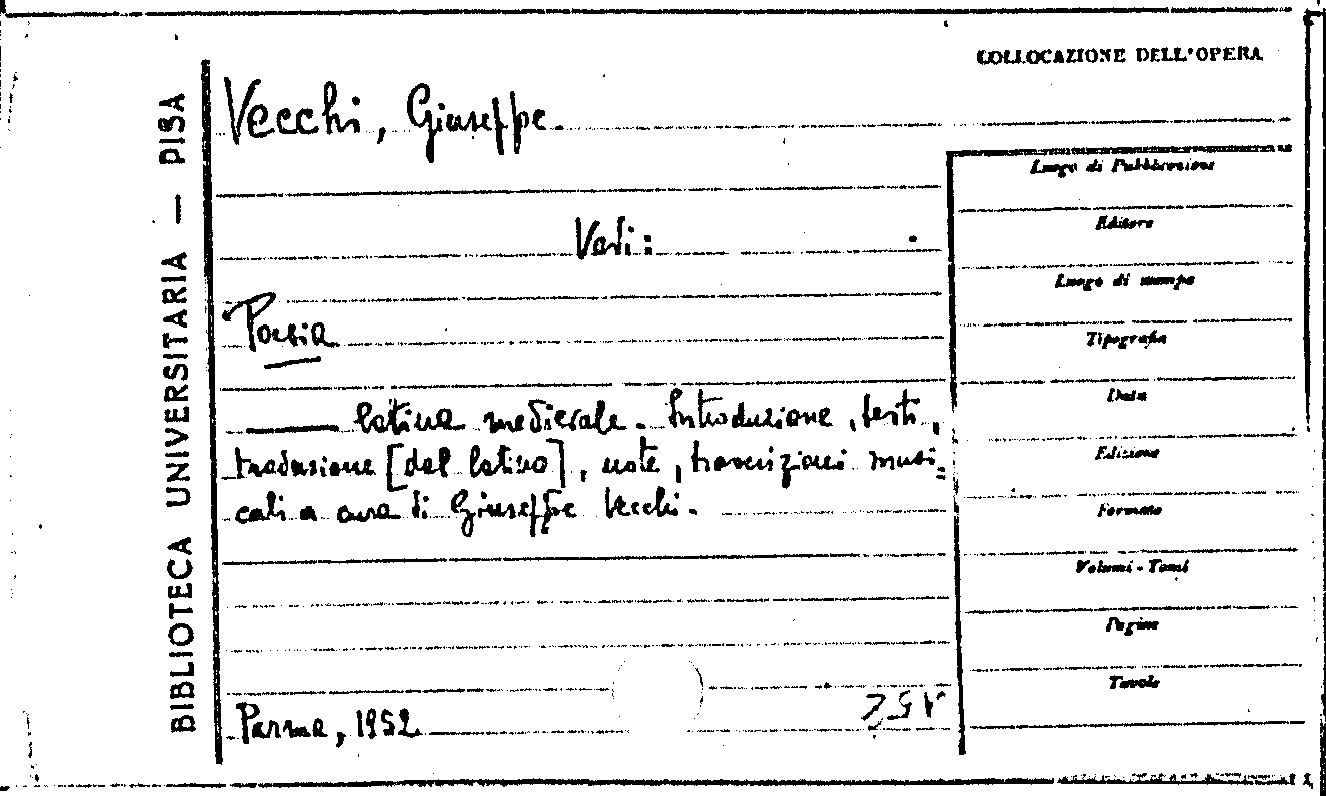 COLLOCAZIONE DELL'OPERA
BIBLIOTECA UNIVERSITARIA — PISA
Vecchi, Giuseppe.
Vedi:
Poesia
——— latina medievale. Introduzione, testi,
traduzione [dal latino], note, trascrizioni musi=
cali a cura di Giuseppe Vecchi.
Parma, 1952
Luogo di Pubblicazione
Editore
Luogo di stampa
Tipografia
Data
Edizione
Formato
Volumi - Tomi
Pagine
Tavole